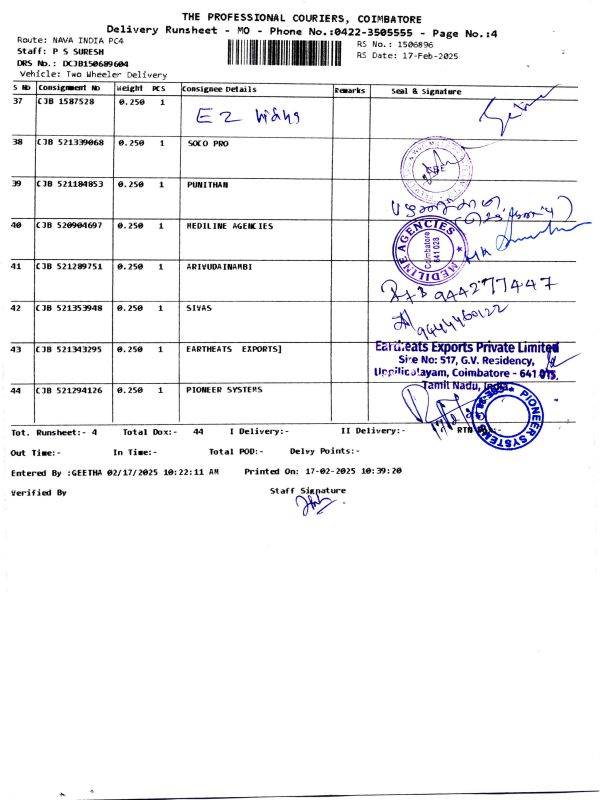 THE PROFESSIONAL COURIERS, COIMBATORE
Delivery Runsheet - MO - Phone No.:0422-3505555 - Page No.:4
Route: NAVA INDIA PC4
RS No.: 1506896
Staff: P S SURESH
RS Date: 17-Feb-2025
DRS No.: DCJB150689604
Vehicle: Two Wheeler Delivery
S No Consignment No Weight PCS Consignee Details Remarks Seal & Signature
37 CJB 1587528 0.250 1 EZ
38 CJB 521339068 0.250 1 SOCO PRO
39 CJB 521184853 0.250 1 PUNITHAN
40 CJB 520904697 0.250 1 MEDILINE AGENCIES
MEDILINE AGENCIES
Coimbatore
641 028
41 CJB 521289751 0.250 1 ARIVUDAINAMBI
9442777447
42 CJB 521353948 0.250 1 SIVAS
9444460122
43 CJB 521343295 0.250 1 EARTHEATS EXPORTS]
Eartheats Exports Private Limited
Site No: 517, G.V. Residency,
Uppilipalayam, Coimbatore - 641 015.
Tamil Nadu, India
44 CJB 521294126 0.250 1 PIONEER SYSTEMS
PIONEER SYSTEMS
Tot. Runsheet:- 4 Total Dox:- 44 I Delivery:- II Delivery:- RTN
Out Time:- In Time:- Total POD:- Delvy Points:-
Entered By :GEETHA 02/17/2025 10:22:11 AM Printed On: 17-02-2025 10:39:20
Verified By Staff Signature